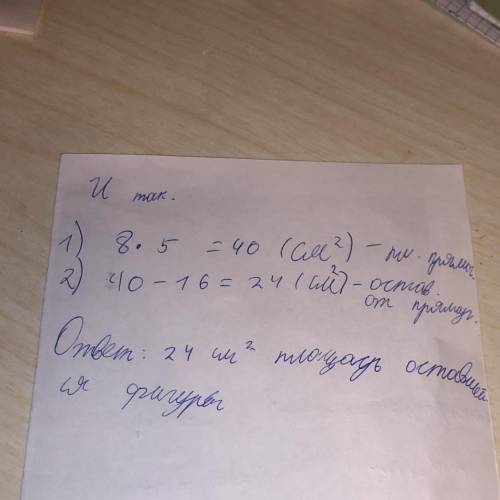 И так.
1) 8 • 5 = 40 (см²) – пл. прямоуг.
2) 40 – 16 = 24 (см²) – остав.
от прямоуг.
Ответ: 24 см² площадь оставшей
ся фигуры